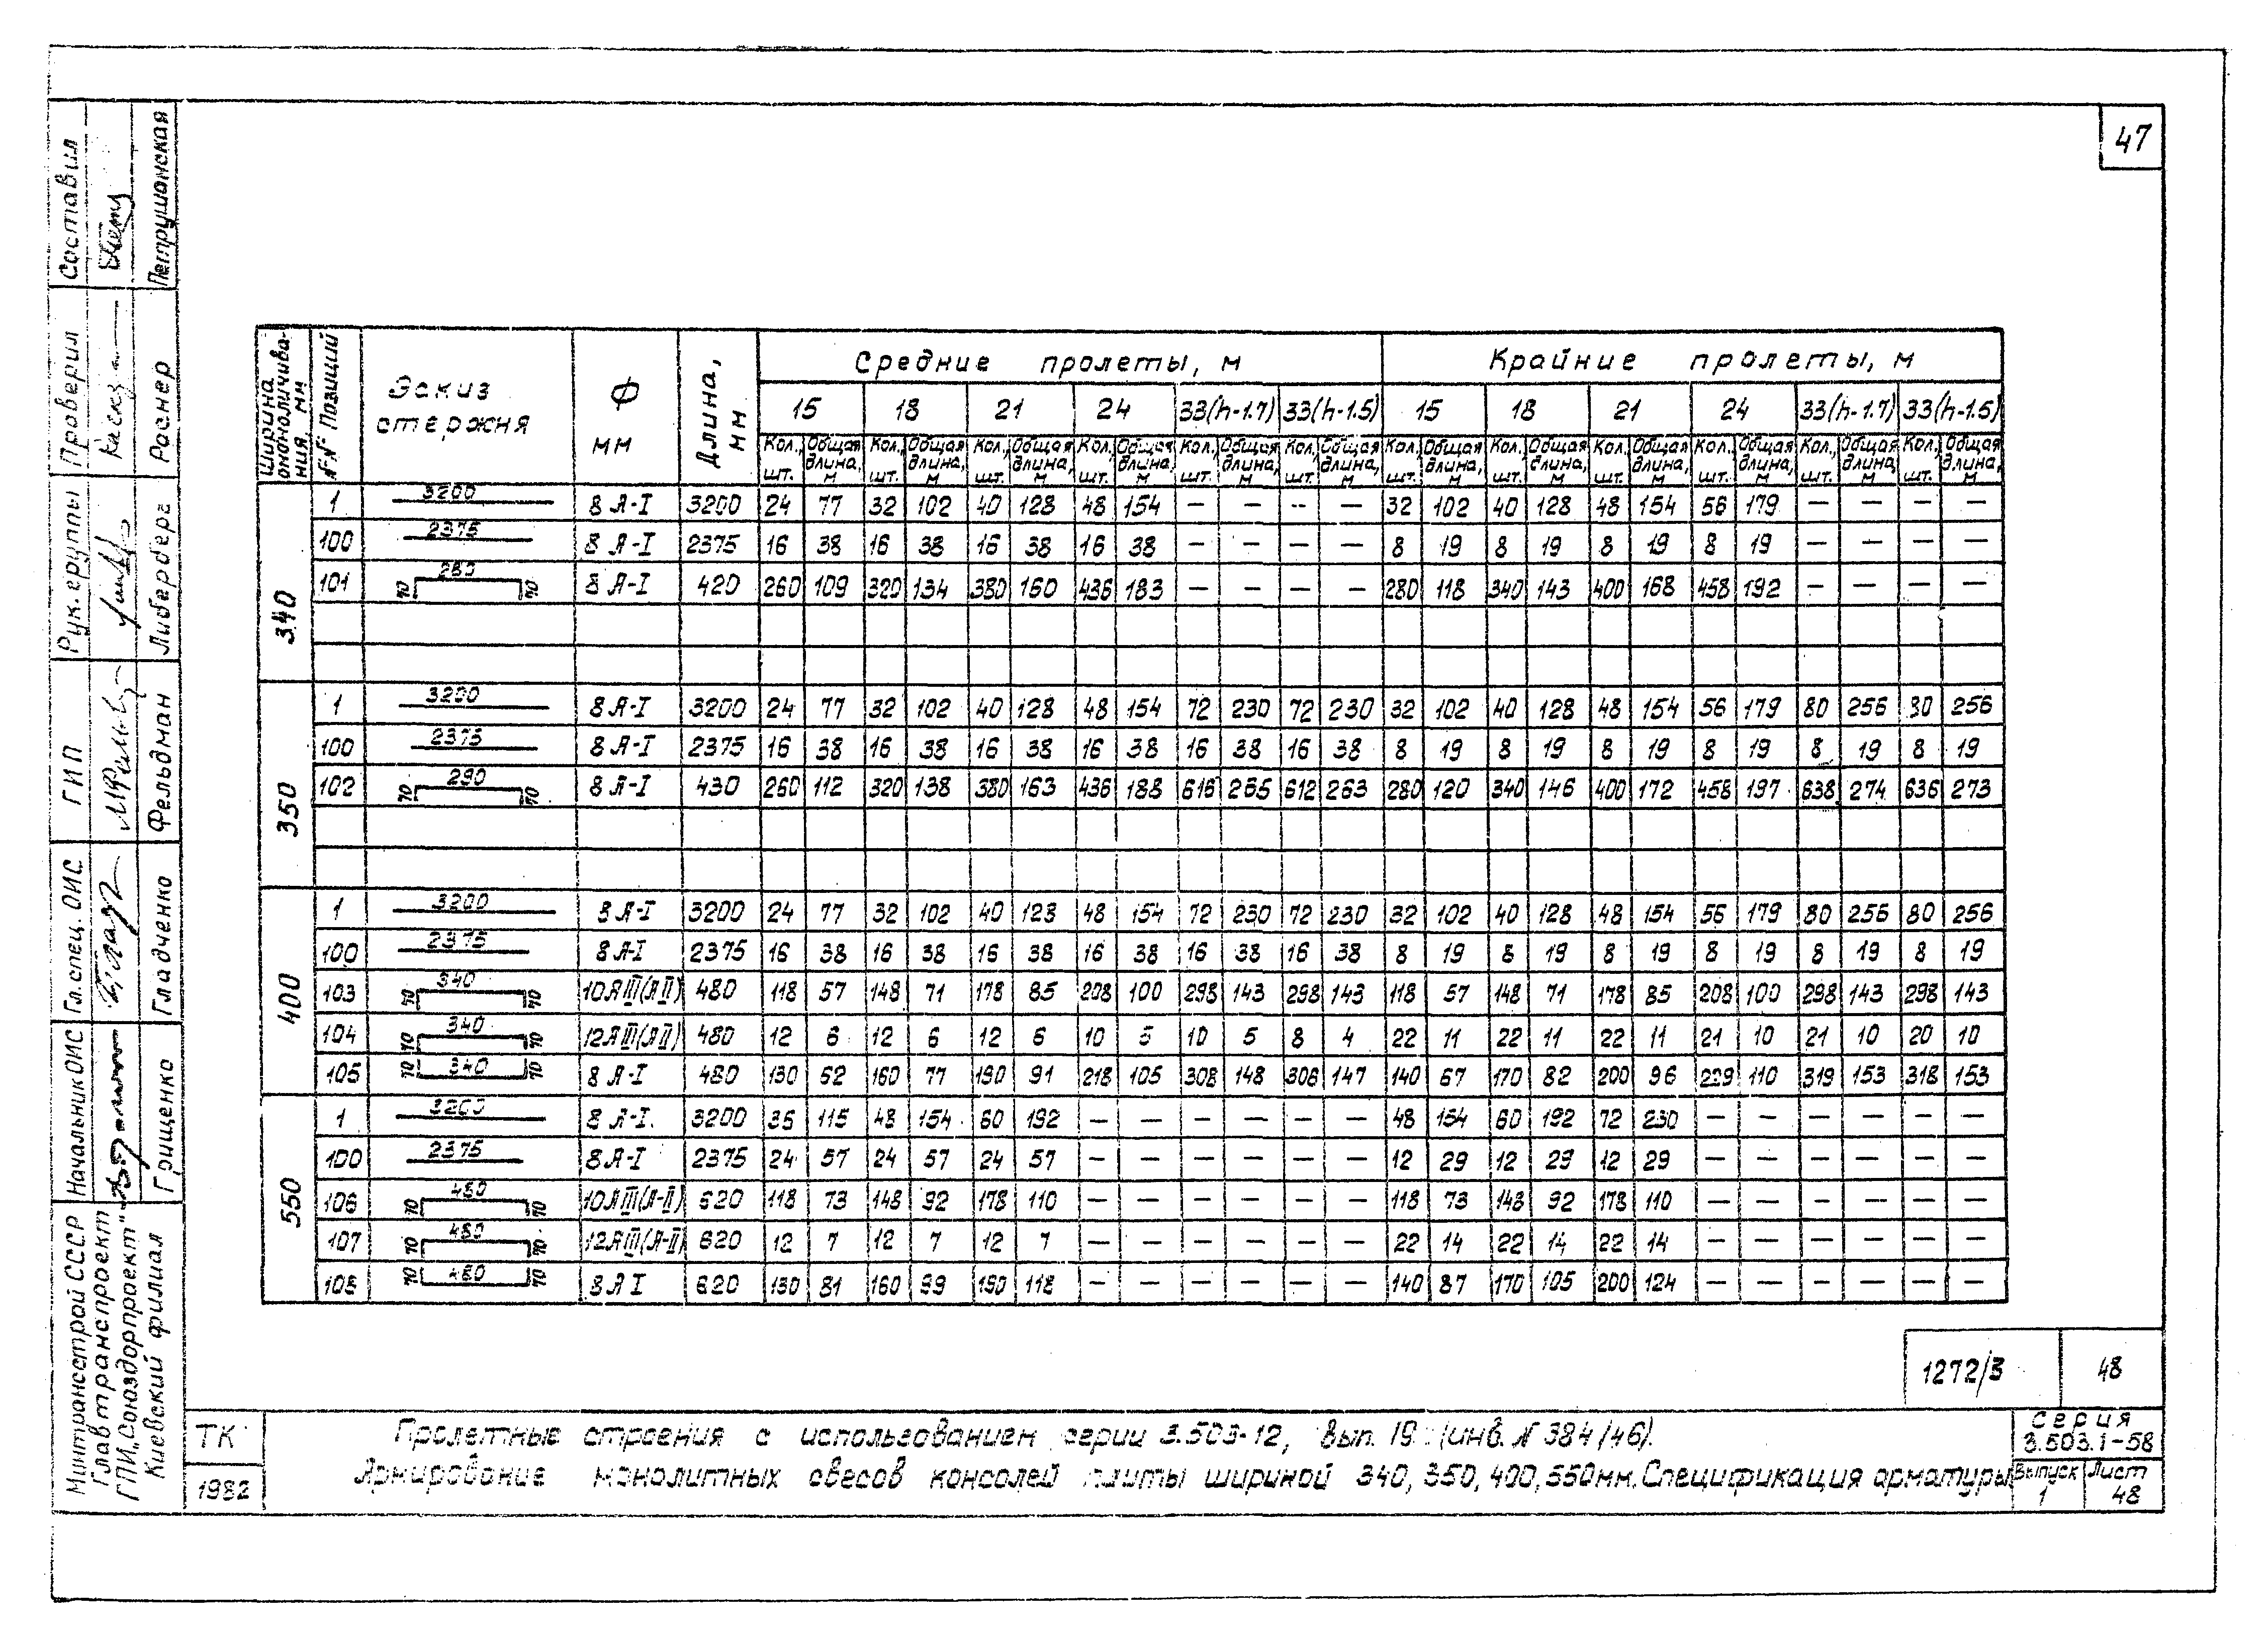 47
Составил Петрушанская
Проверил Роснер
Рук. группы Либерберг
ГИП Фельдман
Гл. спец. ОИС Гладченко
Начальник ОИС Грищенко
Минтрансстрой СССР
Главтранспроект
ГПИ „Союздорпроект"
Киевский филиал
Ширина омоноличива-ния, мм | №№ Позиций | Эскиз стержня | Ф мм | Длина, мм | Средние пролеты, м | Крайние пролеты, м
15 18 21 24 33(h-1.7) 33(h-1.5) 15 18 21 24 33(h-1.7) 33(h-1.5)
Кол., шт. Общая длина, м Кол., шт. Общая длина, м Кол., шт. Общая длина, м Кол., шт. Общая длина, м Кол., шт. Общая длина, м Кол., шт. Общая длина, м Кол., шт. Общая длина, м Кол., шт. Общая длина, м Кол., шт. Общая длина, м Кол., шт. Общая длина, м Кол., шт. Общая длина, м Кол., шт. Общая длина, м
340
1 3200 8 А-I 3200 24 77 32 102 40 128 48 154 — — — — 32 102 40 128 48 154 56 179 — — — —
100 2375 8 А-I 2375 16 38 16 38 16 38 16 38 — — — — 8 19 8 19 8 19 8 19 — — — —
101 70 280 70 8 А-I 420 260 109 320 134 380 160 436 183 — — — — 280 118 340 143 400 168 458 192 — — — —
350
1 3200 8 А-I 3200 24 77 32 102 40 128 48 154 72 230 72 230 32 102 40 128 48 154 56 179 80 256 80 256
100 2375 8 А-I 2375 16 38 16 38 16 38 16 38 16 38 16 38 8 19 8 19 8 19 8 19 8 19 8 19
102 70 290 70 8 А-I 430 260 112 320 138 380 163 436 188 616 265 612 263 280 120 340 146 400 172 458 197 638 274 636 273
400
1 3200 8 А-I 3200 24 77 32 102 40 128 48 154 72 230 72 230 32 102 40 128 48 154 56 179 80 256 80 256
100 2375 8 А-I 2375 16 38 16 38 16 38 16 38 16 38 16 38 8 19 8 19 8 19 8 19 8 19 8 19
103 70 340 70 10АIII(АII) 480 118 57 148 71 178 85 208 100 298 143 298 143 118 57 148 71 178 85 208 100 298 143 298 143
104 70 340 70 12АIII(АII) 480 12 6 12 6 12 6 10 5 10 5 8 4 22 11 22 11 22 11 21 10 21 10 20 10
105 70 340 70 8 А-I 480 130 62 160 77 190 91 218 105 308 148 306 147 140 67 170 82 200 96 229 110 319 153 318 153
550
1 3200 8 А-I. 3200 36 115 48 154 60 192 — — — — — — 48 154 60 192 72 230 — — — — — —
100 2375 8 А-I 2375 24 57 24 57 24 57 — — — — — — 12 29 12 29 12 29 — — — — — —
106 70 480 70 10АIII(А-II) 620 118 73 148 92 178 110 — — — — — — 118 73 148 92 178 110 — — — — — —
107 70 480 70 12АIII(А-II) 620 12 7 12 7 12 7 — — — — — — 22 14 22 14 22 14 — — — — — —
108 70 480 70 8 А I 620 130 81 160 99 190 118 — — — — — — 140 87 170 105 200 124 — — — — — —
1272/3 48
ТК 1982
Пролетные строения с использованием серии 3.503-12, вып. 19 (инв. N 384/46).
Армирование монолитных свесов консолей плиты шириной 340, 350, 400, 550мм. Спецификация арматуры
Серия
3.503.1-58
Выпуск 1
Лист 48